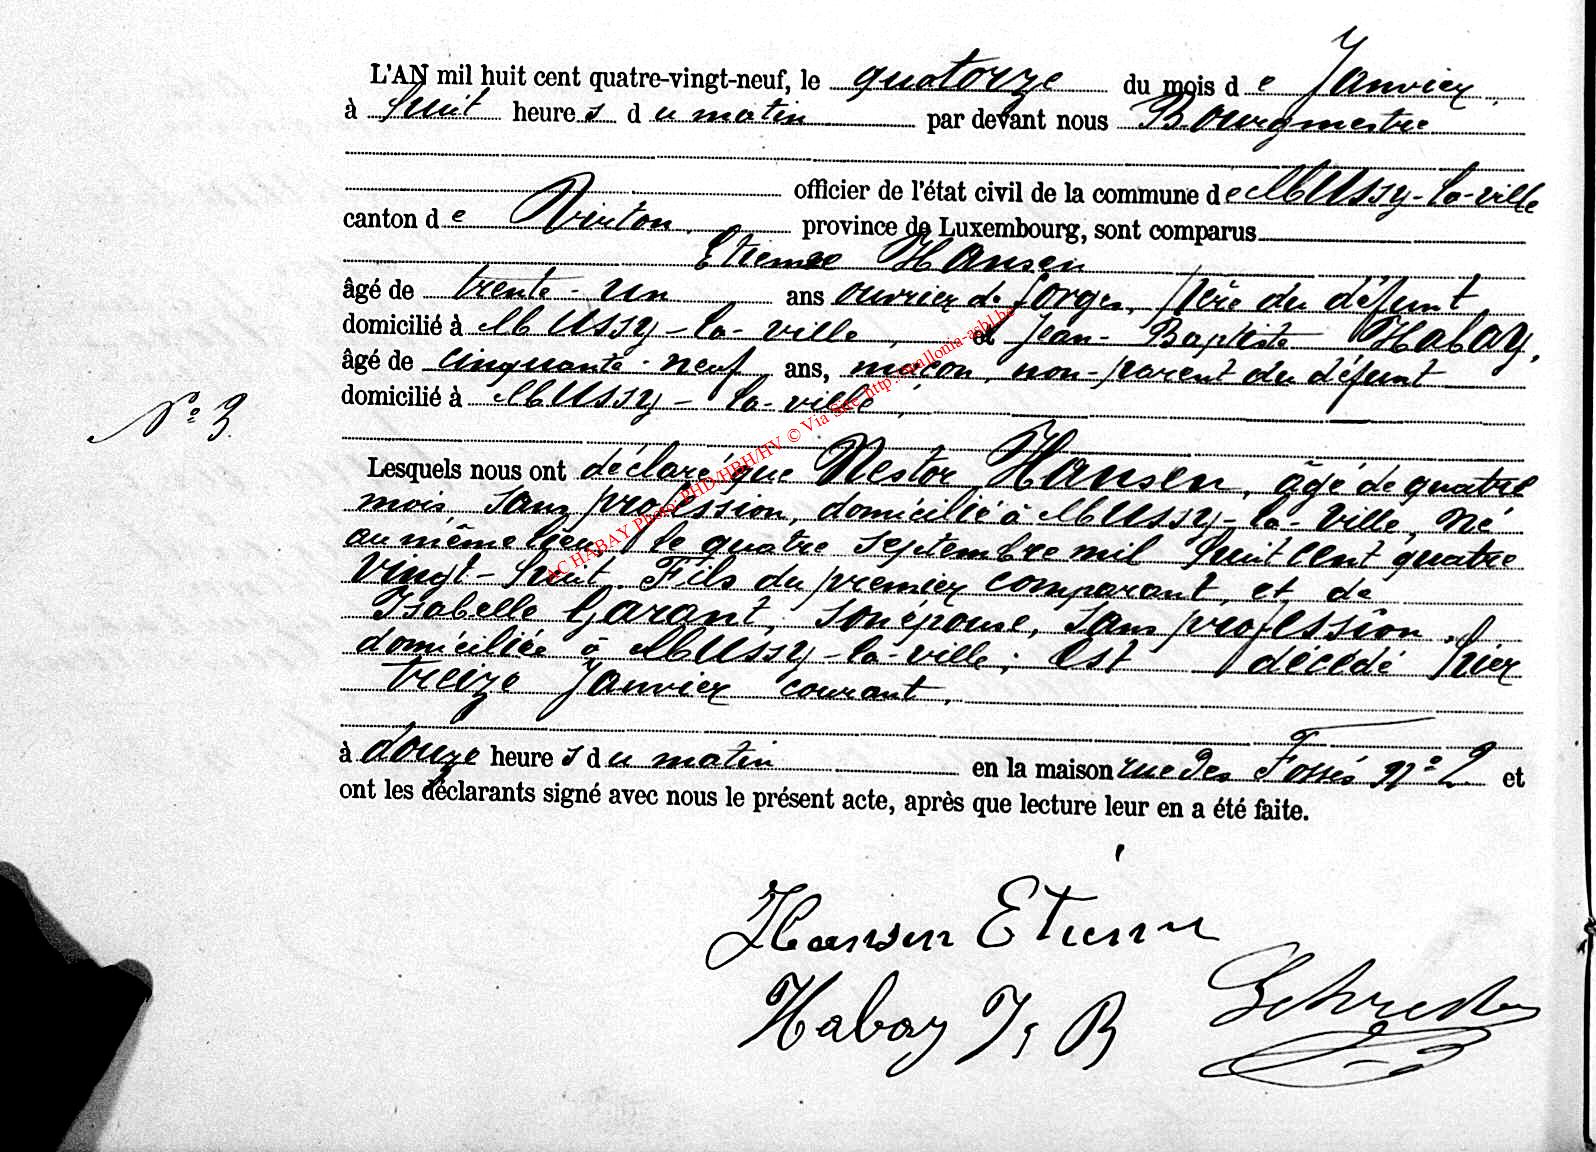 L'AN mil huit cent quatre-vingt-neuf, le quatorze du mois de Janvier,
à huit heures du matin par devant nous Bourgmestre
officier de l'état civil de la commune de Mussy-la-ville
canton de Virton, province de Luxembourg, sont comparus
Etienne Hansen
âgé de trente-un ans ouvrier de forges, père du défunt
domicilié à Mussy-la-ville, et Jean-Baptiste Habay,
âgé de cinquante-neuf ans, maçon, non-parent du défunt
domicilié à Mussy-la-ville,
N° 3.
Lesquels nous ont déclaré que Nestor Hansen, âgé de quatre
mois, sans profession, domicilié à Mussy-la-Ville, né
au même lieu, le quatre septembre mil huit cent quatre
vingt-huit, Fils du premier comparant, et de
Isabelle Garant, son épouse, sans profession,
domiciliée à Mussy-la-ville; est décédé hier
treize Janvier courant,
à douze heures du matin en la maison rue des Fossés n° 2 et
ont les déclarants signé avec nous le présent acte, après que lecture leur en a été faite.
Hansen Etienn
Habay J. B
AC HABAY Photo: PHD/HBH/HV © Via Site http://wallonia-asbl.be